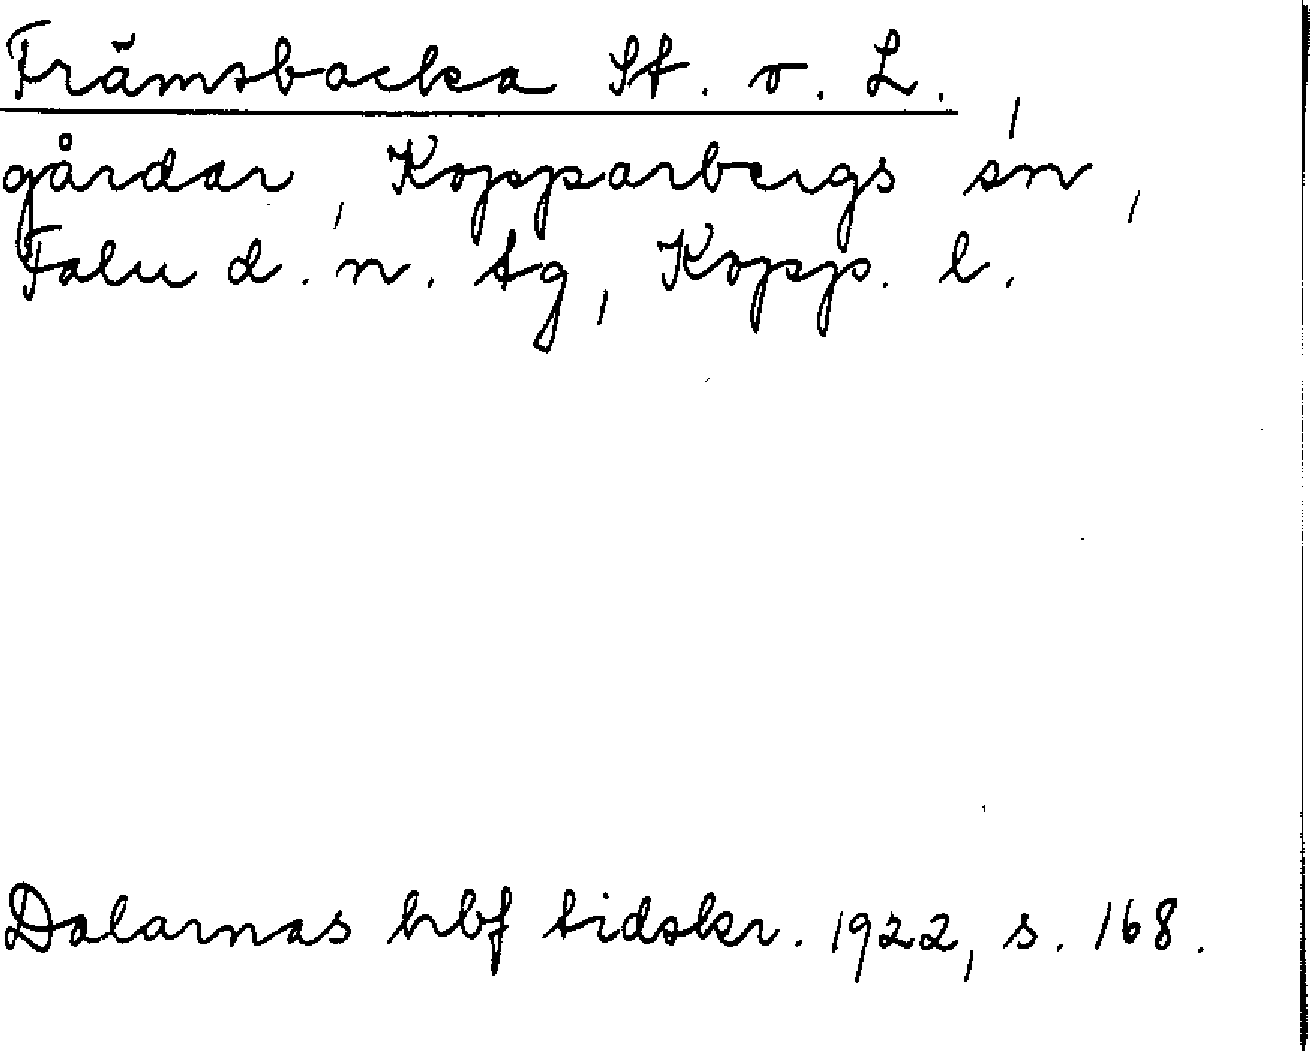 Främsbacka St. o. L.,
gårdar, Kopparbergs sn,
Falu d. n. tg, Kopp. l.
Dalarnas hbf tidskr. 1922, s. 168.